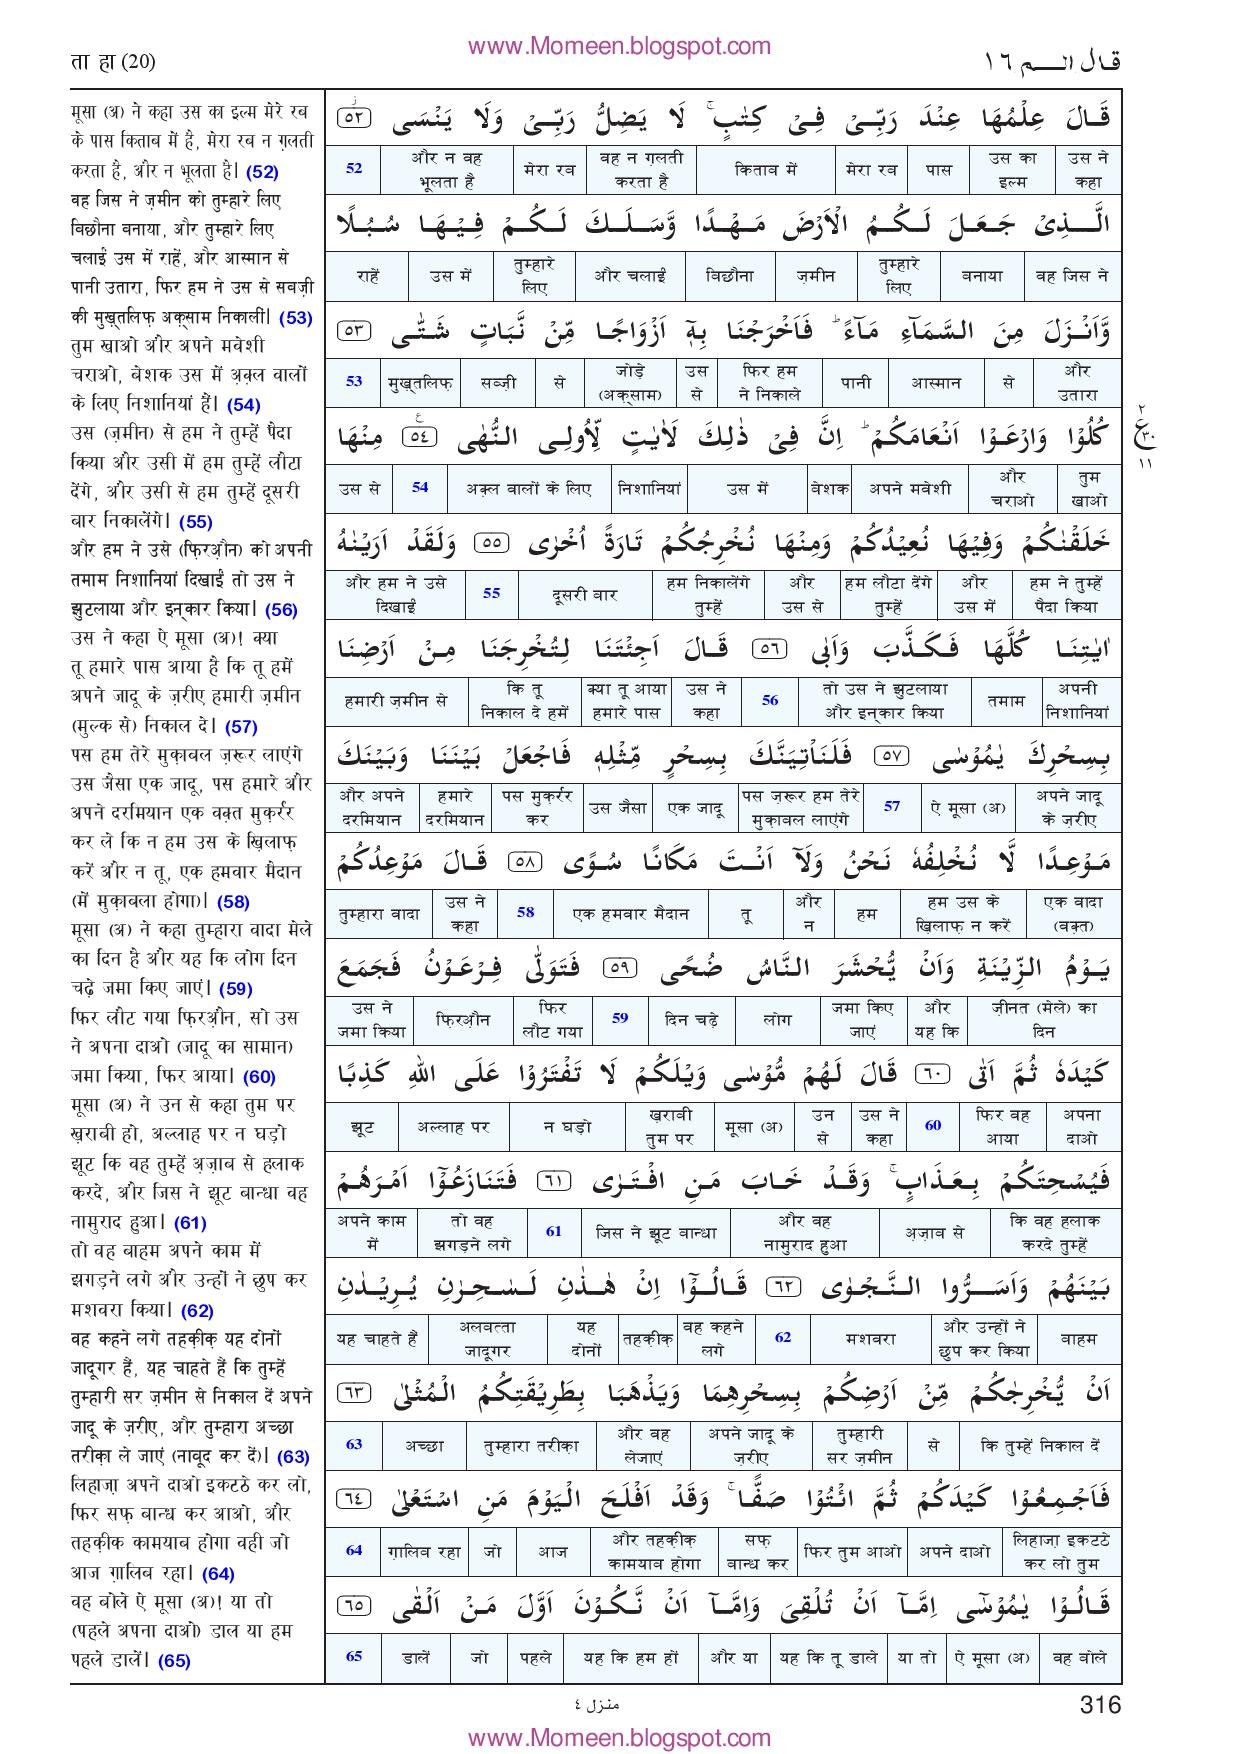 www.Momeen.blogspot.com
ता हा (20)
قال الـــم ١٦
मूसा (अ) ने कहा उस का इल्म मेरे रब
के पास किताब में है, मेरा रब न ग़लती
करता है, और न भूलता है। (52)
वह जिस ने ज़मीन को तुम्हारे लिए
बिछौना बनाया, और तुम्हारे लिए
चलाईं उस में राहें, और आस्मान से
पानी उतारा, फिर हम ने उस से सबज़ी
की मुख़्तलिफ़ अक़्साम निकालीं। (53)
तुम खाओ और अपने मवेशी
चराओ, बेशक उस में अ़क़्ल वालों
के लिए निशानियां हैं। (54)
उस (ज़मीन) से हम ने तुम्हें पैदा
किया और उसी में हम तुम्हें लौटा
देंगे, और उसी से हम तुम्हें दूसरी
बार निकालेंगे। (55)
और हम ने उसे (फ़िरऔन) को अपनी
तमाम निशानियां दिखाईं तो उस ने
झुटलाया और इन्कार किया। (56)
उस ने कहा ऐ मूसा (अ)! क्या
तू हमारे पास आया है कि तू हमें
अपने जादू के ज़रीए हमारी ज़मीन
(मुल्क से) निकाल दे। (57)
पस हम तेरे मुक़ाबल ज़रूर लाएंगे
उस जैसा एक जादू, पस हमारे और
अपने दरमियान एक वक़्त मुक़र्रर
कर ले कि न हम उस के ख़िलाफ़
करें और न तू, एक हमवार मैदान
(में मुक़ाबला होगा)। (58)
मूसा (अ) ने कहा तुम्हारा वादा मेले
का दिन है और यह कि लोग दिन
चढ़े जमा किए जाएं। (59)
फिर लौट गया फ़िरऔ़न, सो उस
ने अपना दाओ (जादू का सामान)
जमा किया, फिर आया। (60)
मूसा (अ) ने उन से कहा तुम पर
ख़राबी हो, अल्लाह पर न घड़ो
झूट कि वह तुम्हें अ़ज़ाब से हलाक
करदे, और जिस ने झूट बान्धा वह
नामुराद हुआ। (61)
तो वह बाहम अपने काम में
झगड़ने लगे और उन्हों ने छुप कर
मशवरा किया। (62)
वह कहने लगे तहक़ीक़ यह दोनों
जादूगर हैं, यह चाहते हैं कि तुम्हें
तुम्हारी सर ज़मीन से निकाल दें अपने
जादू के ज़रीए, और तुम्हारा अच्छा
तरीक़ा ले जाएं (नाबूद कर दें)। (63)
लिहाज़ा अपने दाओ इकटठे कर लो,
फिर सफ़ बान्ध कर आओ, और
तहक़ीक़ कामयाब होगा वही जो
आज ग़ालिब रहा। (64)
वह बोले ऐ मूसा (अ)! या तो
(पहले अपना दाओ) डाल या हम
पहले डालें। (65)
قَالَ عِلْمُهَا عِنْدَ رَبِّيْ فِيْ كِتٰبٍ ۚ لَا يَضِلُّ رَبِّيْ وَلَا يَنْسَى ٥٢
उस ने कहा | उस का इल्म | पास | मेरा रब | किताब में | वह न ग़लती करता है | मेरा रब | और न वह भूलता है | 52
الَّذِيْ جَعَلَ لَكُمُ الْاَرْضَ مَهْدًا وَّسَلَكَ لَكُمْ فِيْهَا سُبُلًا
वह जिस ने | बनाया | तुम्हारे लिए | ज़मीन | बिछौना | और चलाईं | तुम्हारे लिए | उस में | राहें
وَّاَنْزَلَ مِنَ السَّمَآءِ مَآءً ؕ فَاَخْرَجْنَا بِهٖٓ اَزْوَاجًا مِّنْ نَّبَاتٍ شَتّٰى ٥٣
और उतारा | से | आस्मान | पानी | फिर हम ने निकाले | उस से | जोड़े (अक़्साम) | से | सब्ज़ी | मुख़्तलिफ़ | 53
كُلُوْا وَارْعَوْا اَنْعَامَكُمْ ؕ اِنَّ فِيْ ذٰلِكَ لَاٰيٰتٍ لِّاُولِى النُّهٰى ٥٤ مِنْهَا
٢
ع
٣٠
١١
तुम खाओ | और चराओ | अपने मवेशी | बेशक | उस में | निशानियां | अक़्ल वालों के लिए | 54 | उस से
خَلَقْنٰكُمْ وَفِيْهَا نُعِيْدُكُمْ وَمِنْهَا نُخْرِجُكُمْ تَارَةً اُخْرٰى ٥٥ وَلَقَدْ اَرَيْنٰهُ
हम ने तुम्हें पैदा किया | और उस में | हम लौटा देंगे तुम्हें | और उस से | हम निकालेंगे तुम्हें | दूसरी बार | 55 | और हम ने उसे दिखाईं
اٰيٰتِنَا كُلَّهَا فَكَذَّبَ وَاَبٰى ٥٦ قَالَ اَجِئْتَنَا لِتُخْرِجَنَا مِنْ اَرْضِنَا
अपनी निशानियां | तमाम | तो उस ने झुटलाया और इन्कार किया | 56 | उस ने कहा | क्या तू आया हमारे पास | कि तू निकाल दे हमें | हमारी ज़मीन से
بِسِحْرِكَ يٰمُوْسٰى ٥٧ فَلَنَاْتِيَنَّكَ بِسِحْرٍ مِّثْلِهٖ فَاجْعَلْ بَيْنَنَا وَبَيْنَكَ
अपने जादू के ज़रीए | ऐ मूसा (अ) | 57 | पस ज़रूर हम तेरे मुक़ाबल लाएंगे | एक जादू | उस जैसा | पस मुक़र्रर कर | हमारे दरमियान | और अपने दरमियान
مَوْعِدًا لَّا نُخْلِفُهٗ نَحْنُ وَلَآ اَنْتَ مَكَانًا سُوًى ٥٨ قَالَ مَوْعِدُكُمْ
एक वादा (वक़्त) | हम उस के ख़िलाफ़ न करें | हम | और न | तू | एक हमवार मैदान | 58 | उस ने कहा | तुम्हारा वादा
يَوْمُ الزِّيْنَةِ وَاَنْ يُّحْشَرَ النَّاسُ ضُحًى ٥٩ فَتَوَلّٰى فِرْعَوْنُ فَجَمَعَ
ज़ीनत (मेले) का दिन | और यह कि | जमा किए जाएं | लोग | दिन चढ़े | 59 | फिर लौट गया | फ़िरऔ़न | उस ने जमा किया
كَيْدَهٗ ثُمَّ اَتٰى ٦٠ قَالَ لَهُمْ مُّوْسٰى وَيْلَكُمْ لَا تَفْتَرُوْا عَلَى اللّٰهِ كَذِبًا
अपना दाओ | फिर वह आया | 60 | उस ने कहा | उन से | मूसा (अ) | ख़राबी तुम पर | न घड़ो | अल्लाह पर | झूट
فَيُسْحِتَكُمْ بِعَذَابٍ ۚ وَقَدْ خَابَ مَنِ افْتَرٰى ٦١ فَتَنَازَعُوْٓا اَمْرَهُمْ
कि वह हलाक करदे तुम्हें | अ़ज़ाब से | और वह नामुराद हुआ | जिस ने झूट बान्धा | 61 | तो वह झगड़ने लगे | अपने काम में
بَيْنَهُمْ وَاَسَرُّوا النَّجْوٰى ٦٢ قَالُوْٓا اِنْ هٰذٰنِ لَسٰحِرٰنِ يُرِيْدٰنِ
बाहम | और उन्हों ने छुप कर किया | मशवरा | 62 | वह कहने लगे | तहक़ीक़ | यह दोनों | अलबत्ता जादूगर | यह चाहते हैं
اَنْ يُّخْرِجٰكُمْ مِّنْ اَرْضِكُمْ بِسِحْرِهِمَا وَيَذْهَبَا بِطَرِيْقَتِكُمُ الْمُثْلٰى ٦٣
कि तुम्हें निकाल दें | से | तुम्हारी सर ज़मीन | अपने जादू के ज़रीए | और वह लेजाएं | तुम्हारा तरीक़ा | अच्छा | 63
فَاَجْمِعُوْا كَيْدَكُمْ ثُمَّ ائْتُوْا صَفًّا ۚ وَقَدْ اَفْلَحَ الْيَوْمَ مَنِ اسْتَعْلٰى ٦٤
लिहाज़ा इकटठे कर लो तुम | अपने दाओ | फिर तुम आओ | सफ़ बान्ध कर | और तहक़ीक़ कामयाब होगा | आज | जो | ग़ालिब रहा | 64
قَالُوْا يٰمُوْسٰٓى اِمَّآ اَنْ تُلْقِيَ وَاِمَّآ اَنْ نَّكُوْنَ اَوَّلَ مَنْ اَلْقٰى ٦٥
वह बोले | ऐ मूसा (अ) | या तो | यह कि तू डाले | और या | यह कि हम हों | पहले | जो | डालें | 65
منزل ٤
316
www.Momeen.blogspot.com